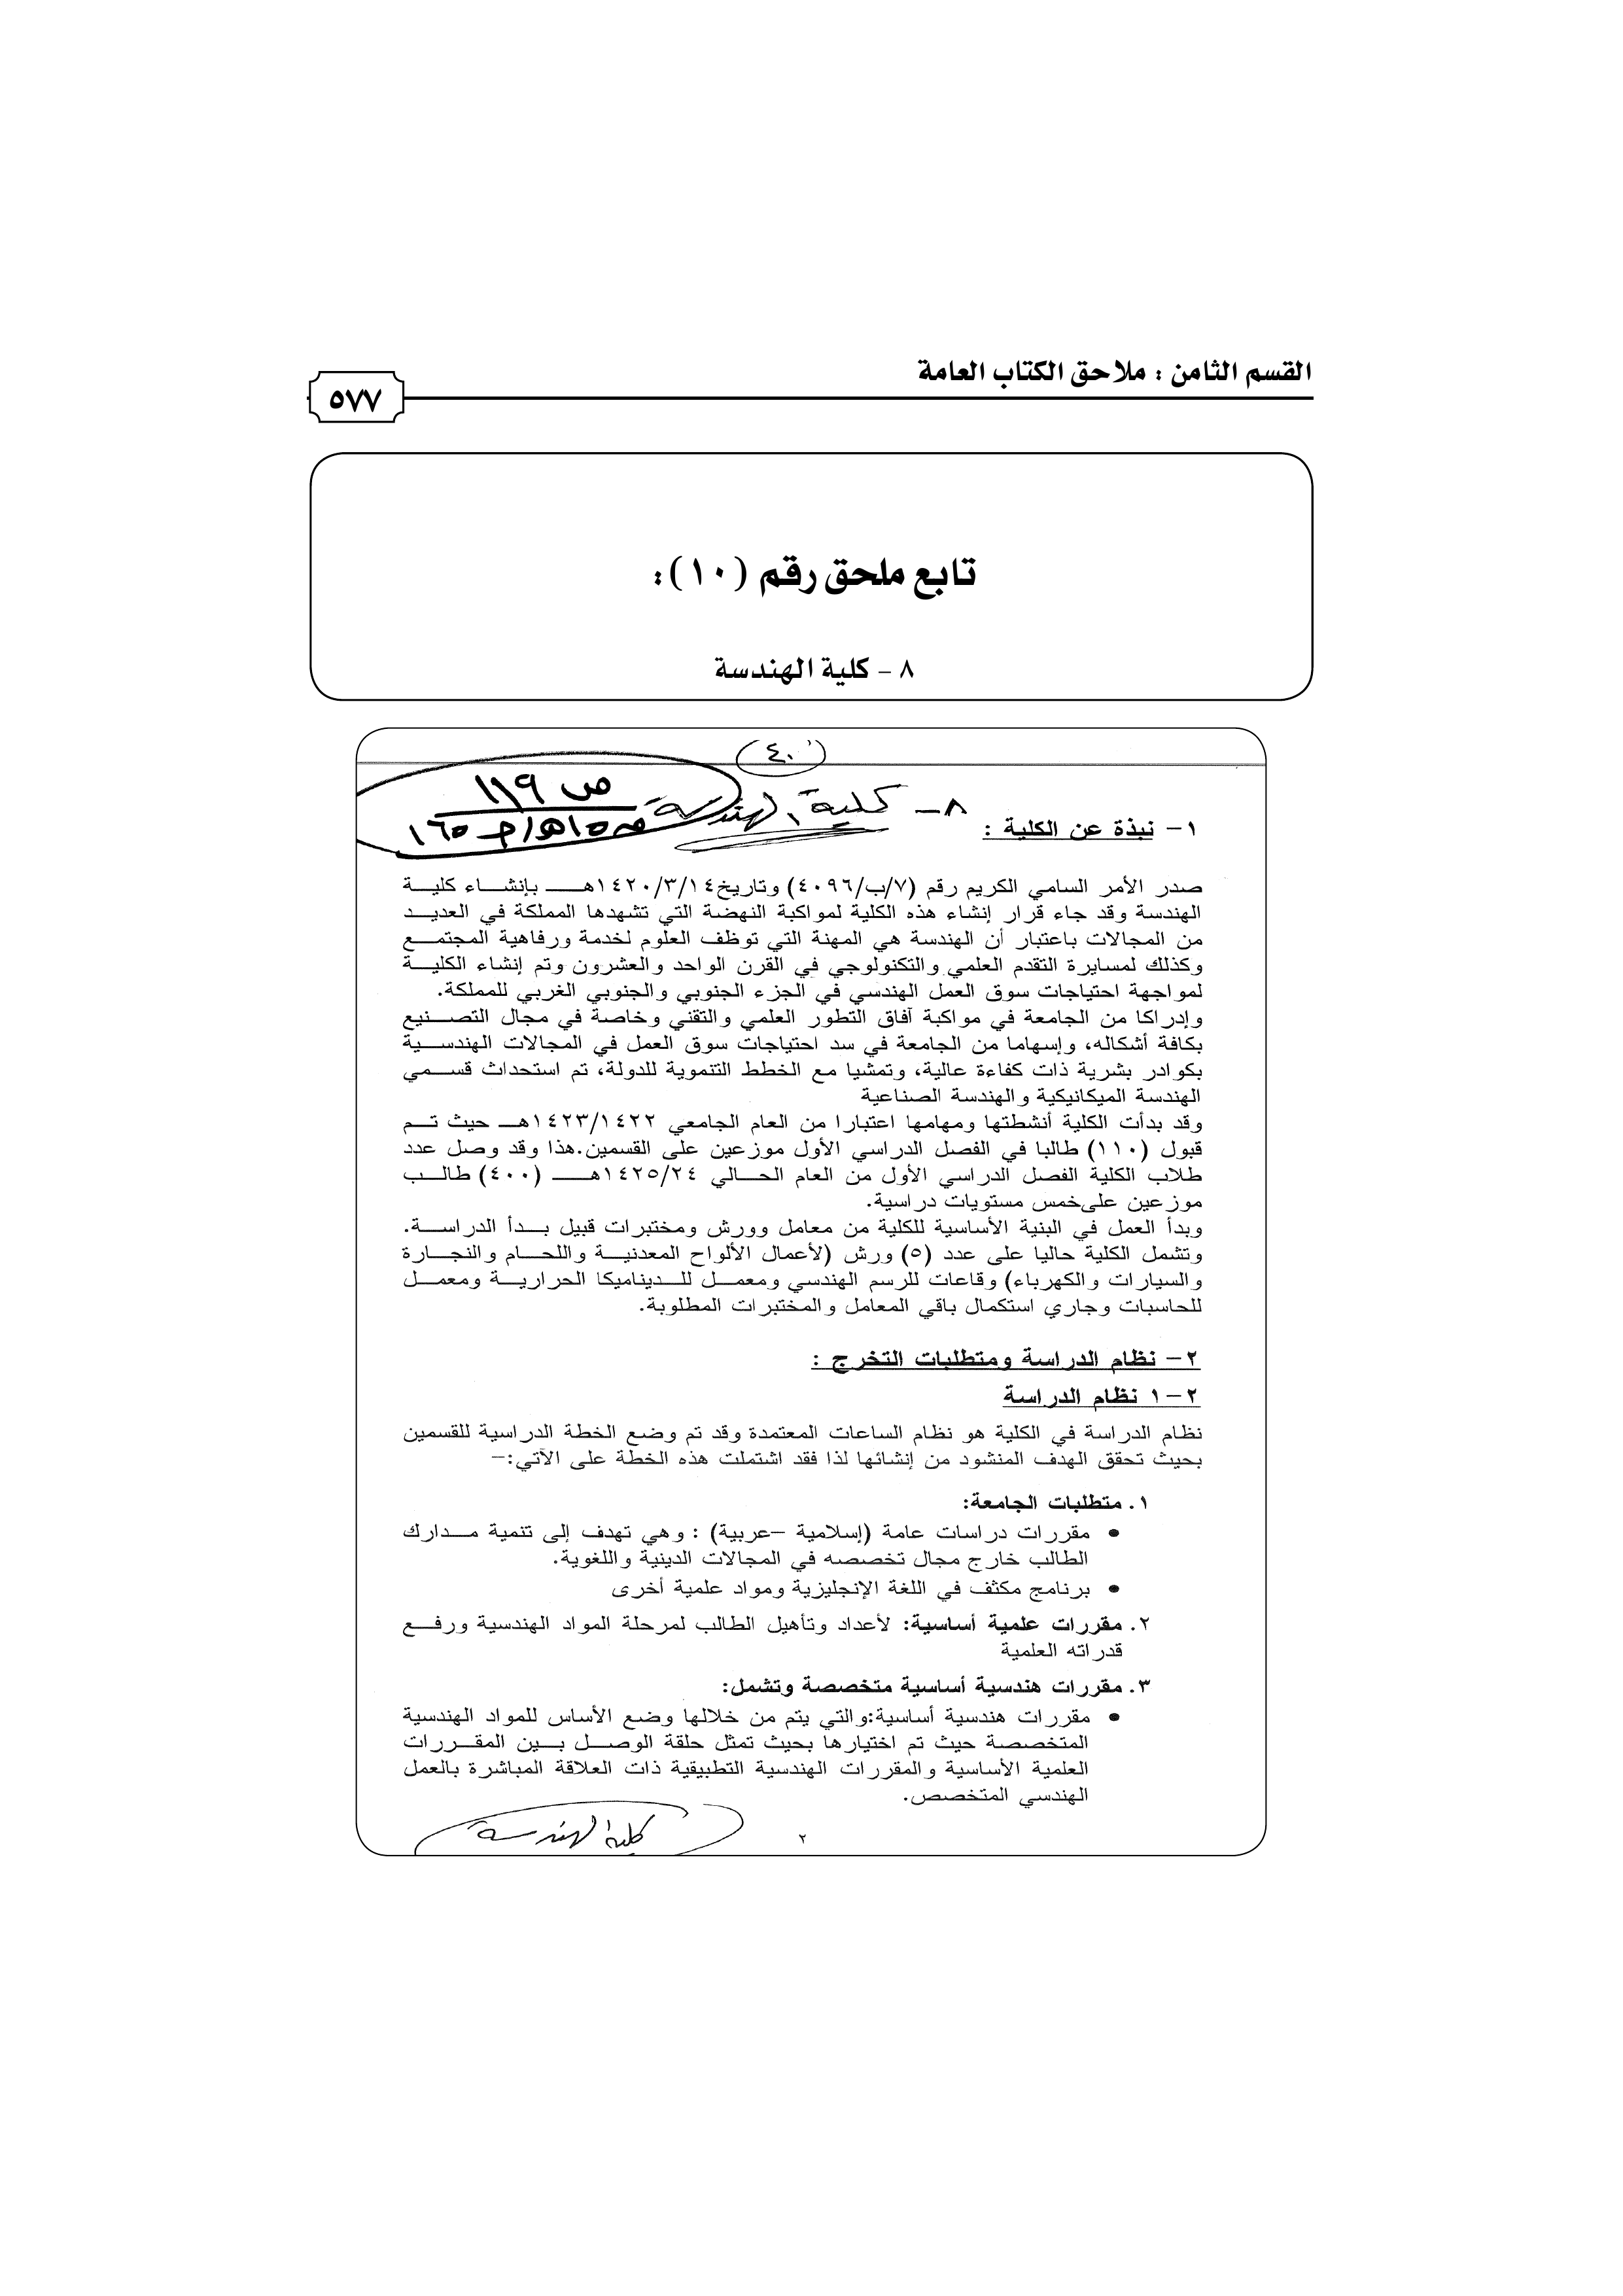 القسم الثامن : ملاحق الكتاب العامة
٥٧٧
تابع ملحق رقم (١٠):
٨ - كلية الهندسة
٤٠
ص ١١٩
٨- كلية الهندسة
١- نبذة عن الكلية :
صدر الأمر السامي الكريم رقم (٧/ب/٤٠٩٦) وتاريخ١٤٢٠/٣/١٤هـ بإنشاء كلية
الهندسة وقد جاء قرار إنشاء هذه الكلية لمواكبة النهضة التي تشهدها المملكة في العديد
من المجالات باعتبار أن الهندسة هي المهنة التي توظف العلوم لخدمة ورفاهية المجتمع
وكذلك لمسايرة التقدم العلمي والتكنولوجي في القرن الواحد والعشرون وتم إنشاء الكلية
لمواجهة احتياجات سوق العمل الهندسي في الجزء الجنوبي والجنوبي الغربي للمملكة.
وإدراكا من الجامعة في مواكبة آفاق التطور العلمي والتقني وخاصة في مجال التصنيع
بكافة أشكاله، وإسهاما من الجامعة في سد احتياجات سوق العمل في المجالات الهندسية
بكوادر بشرية ذات كفاءة عالية، وتمشيا مع الخطط التنموية للدولة، تم استحداث قسمي
الهندسة الميكانيكية والهندسة الصناعية
وقد بدأت الكلية أنشطتها ومهامها اعتبارا من العام الجامعي ١٤٢٣/١٤٢٢هـ حيث تم
قبول (١١٠) طالبا في الفصل الدراسي الأول موزعين على القسمين.هذا وقد وصل عدد
طلاب الكلية الفصل الدراسي الأول من العام الحالي ١٤٢٥/٢٤هـ (٤٠٠) طالب
موزعين على خمس مستويات دراسية.
وبدأ العمل في البنية الأساسية للكلية من معامل وورش ومختبرات قبيل بدأ الدراسة.
وتشمل الكلية حاليا على عدد (٥) ورش (لأعمال الألواح المعدنية واللحام والنجارة
والسيارات والكهرباء) وقاعات للرسم الهندسي ومعمل للديناميكا الحرارية ومعمل
للحاسبات وجاري استكمال باقي المعامل والمختبرات المطلوبة.
٢- نظام الدراسة ومتطلبات التخرج :
٢-١ نظام الدراسة
نظام الدراسة في الكلية هو نظام الساعات المعتمدة وقد تم وضع الخطة الدراسية للقسمين
بحيث تحقق الهدف المنشود من إنشائها لذا فقد اشتملت هذه الخطة على الآتي:-
١. متطلبات الجامعة:
• مقررات دراسات عامة (إسلامية -عربية) : وهي تهدف إلى تنمية مدارك
الطالب خارج مجال تخصصه في المجالات الدينية واللغوية.
• برنامج مكثف في اللغة الإنجليزية ومواد علمية أخرى
٢. مقررات علمية أساسية: لأعداد وتأهيل الطالب لمرحلة المواد الهندسية ورفع
قدراته العلمية
٣. مقررات هندسية أساسية متخصصة وتشمل:
• مقررات هندسية أساسية:والتي يتم من خلالها وضع الأساس للمواد الهندسية
المتخصصة حيث تم اختيارها بحيث تمثل حلقة الوصل بين المقررات
العلمية الأساسية والمقررات الهندسية التطبيقية ذات العلاقة المباشرة بالعمل
الهندسي المتخصص.
٢
كلية الهندسة